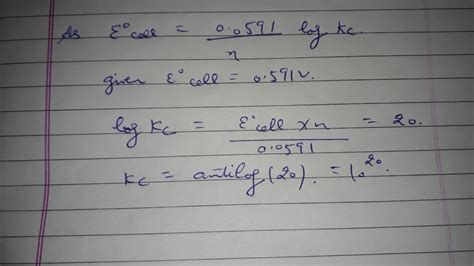 As E°cell = 0.0591/n log Kc.
given E°cell = 0.591V.
log Kc = E°cell x n / 0.0591 = 20.
Kc = antilog(20). = 10^20.